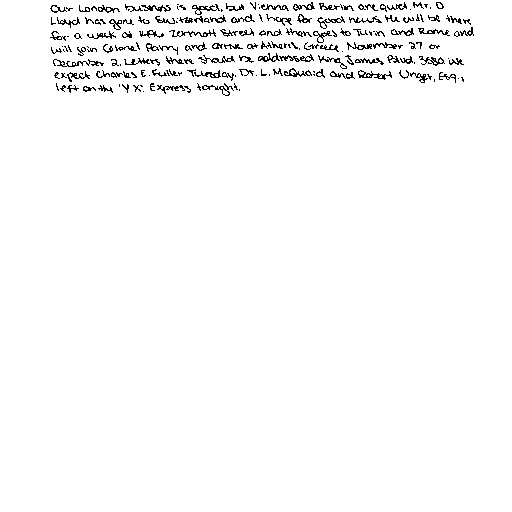 Our London business is good, but Vienna and Berlin are quiet. Mr. D
Lloyd has gone to Switzerland and I hope for good news. He will be there
for a week at Zermott Street and then goes to Turin and Rome and
will join Colonel Parry and arrive at Athens, Greece, November 27 or
December 2. Letters there should be addressed King James Blvd. 3580. We
expect Charles E. Fuller Tuesday. Dr. L. McQuaid and Robert Unger, Esq.,
left on the 'Y X' Express tonight.